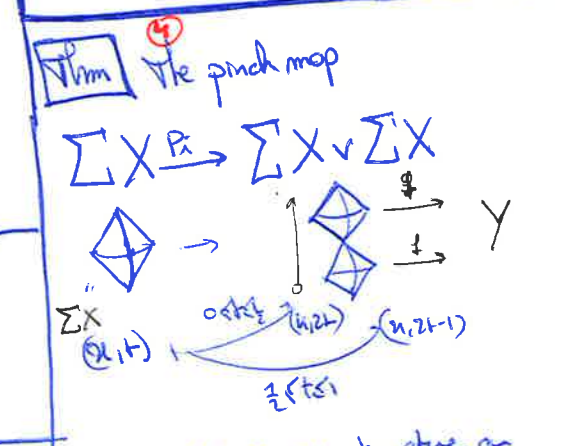 4
Thm The pinch map
ΣX Pi → ΣX ∨ ΣX
g
Y
f
ΣX
0≤t≤½ (x,2t) (x,2t-1)
(x,t)
½≤t≤1